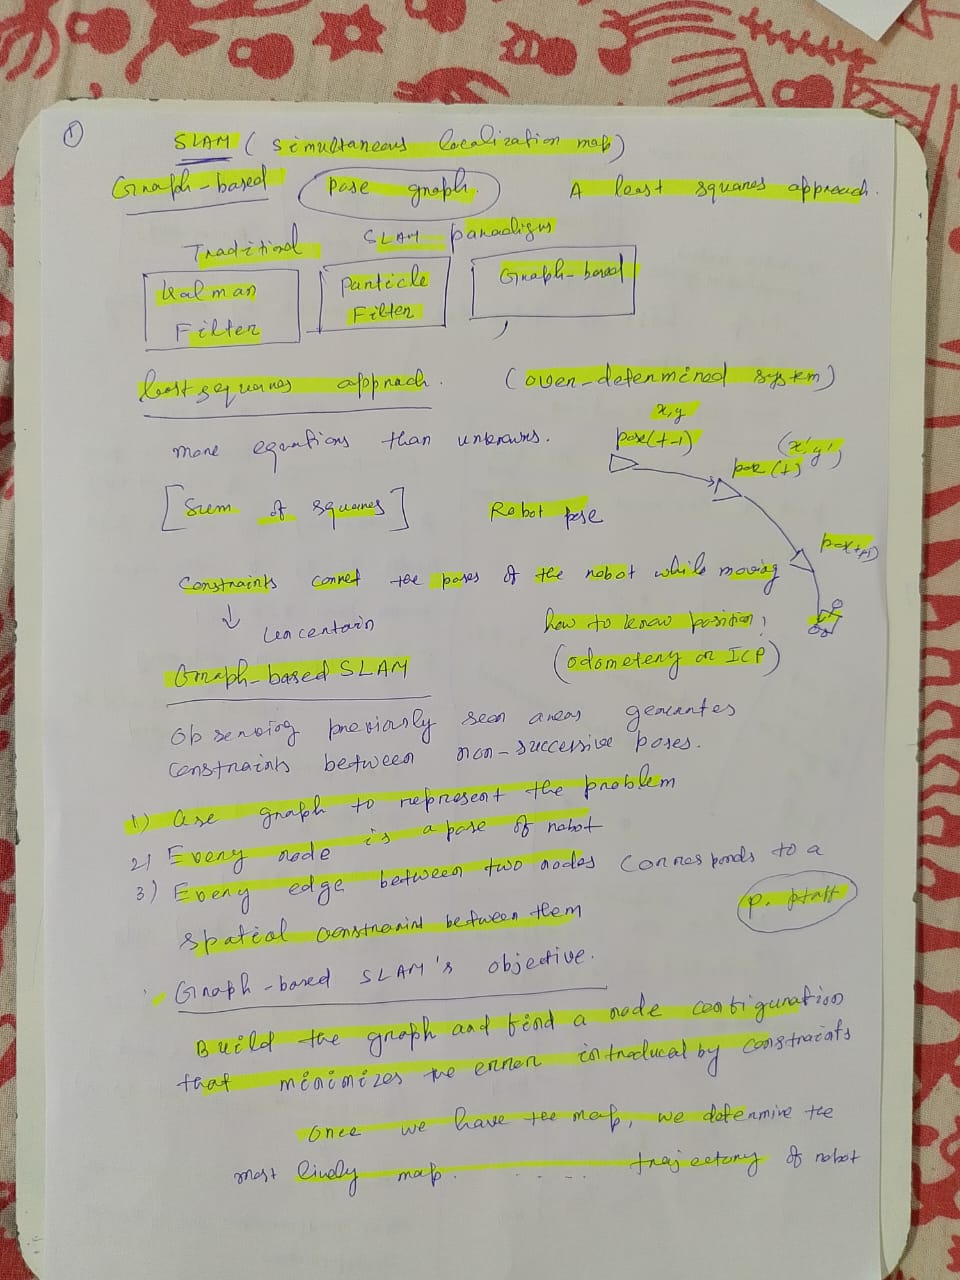 ①
SLAM ( Simultaneous localization map)
Graph-based pose graph. A least squares approach.
Traditional SLAM paradigms
Kalman Filter
Particle Filter
Graph-based
least squares approach. (over-determined system)
more equations than unknowns.
x, y
pose(t-1)
(x', y')
pose (t)
[Sum of squares]
Robot pose
pose(t+1)
Constraints connect the poses of the robot while moving
↓
Uncertain
how to know position?
(odometery or ICP)
Graph-based SLAM
Observing previously seen areas generates
constraints between non-successive poses.
1) Use graph to represent the problem
2) Every node is a pose of robot
3) Every edge between two nodes corresponds to a
spatial constraint between them
P.
Graph-based SLAM's objective.
Build the graph and find a node configuration
that minimizes the error introduced by constraints
Once we have the map, we determine the
most lively map. .... trajectory of robot